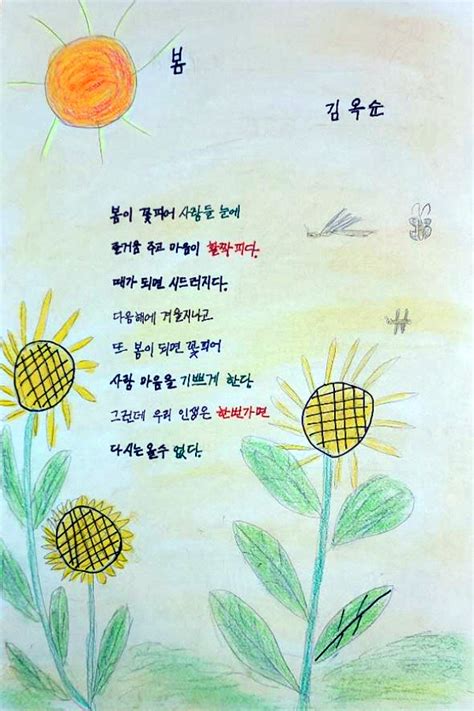 봄
김옥순
봄이 꽃피어 사람들 눈에
즐거움 주고 마음이 활짝피다.
때가 되면 시드러지다.
다음해에 겨울지나고
또 봄이 되면 꽃피어
사람 마음을 기쁘게 한다
그런데 우리 인생은 한번가면
다시는올수 없다.